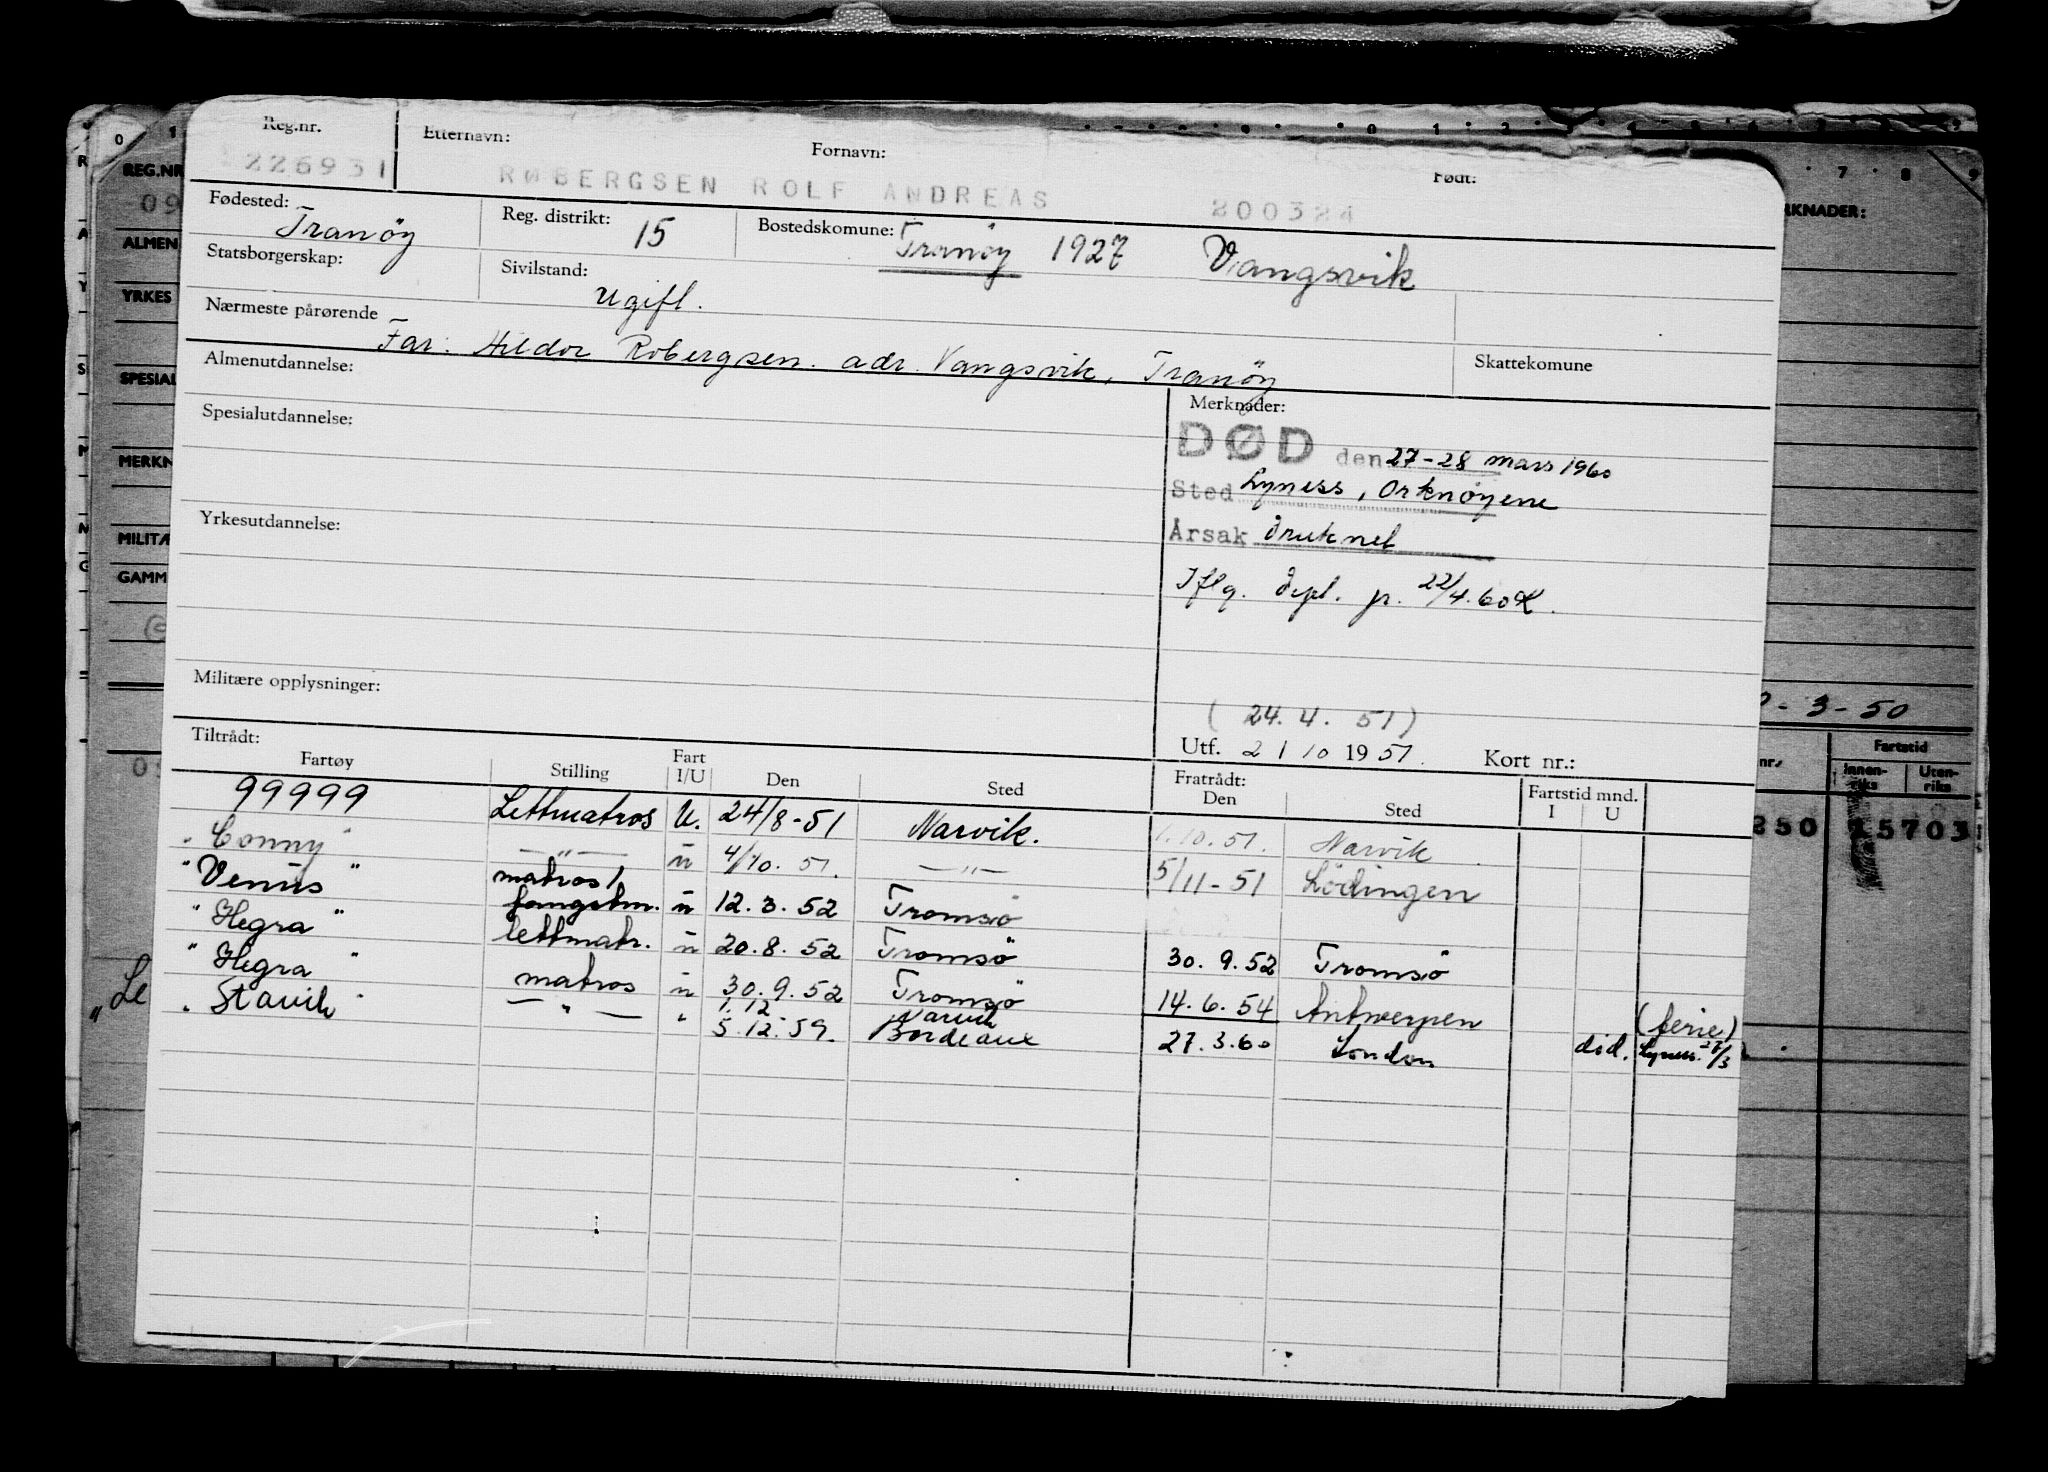 Reg.nr. Etternavn: Fornavn: Født:
226931 RØBERGSEN ROLF ANDREAS 200324
Fødested: Tranöy Reg. distrikt: 15 Bostedskomune: Tranöy 1927 Vangsvik
Statsborgerskap: Sivilstand: ugift.
Nærmeste pårørende Far: Hildor Robergsen. adr. Vangsvik, Tranöy Skattekomune
Almenutdannelse:
Spesialutdannelse: Merknader:
DØD den 27-28 mars 1960
Sted Lyness, Orknöyene
Yrkesutdannelse: Årsak druknet
Iflg. dept. pr. 22/4.60
Militære opplysninger: (24.4.51)
Utf. 2 1 10 1951. Kort nr.:
Tiltrådt: Fratrådt:
Fartøy Stilling Fart I/U Den Sted Den Sted Fartstid mnd. I U
99999 Lettmatros U. 24/8-51 Narvik. 1.10.51. Narvik
"Conny" —"— u 4/10.51. —"— 5/11-51 Lödingen
"Venus" matros/ fangstm. u 12.3.52 Tromsö
"Hegra" lettmatr. u 20.8.52 Tromsö 30.9.52 Tromsö
"Hegra" matros u 30.9.52 Tromsö 14.6.54 Antwerpen (ferie)
"Stavik" —"— " 1.12 Narvik
5.12.59. Bordeaux 27.3.60 London did. Lyness
REG.NR
09
ALMEN
YRKES
SPESIAL
MERKN
MILITÆ
GAMM
RKNADER:
-3-50
nr. Fartstid
Innenriks Utenriks
250 5703
"Le